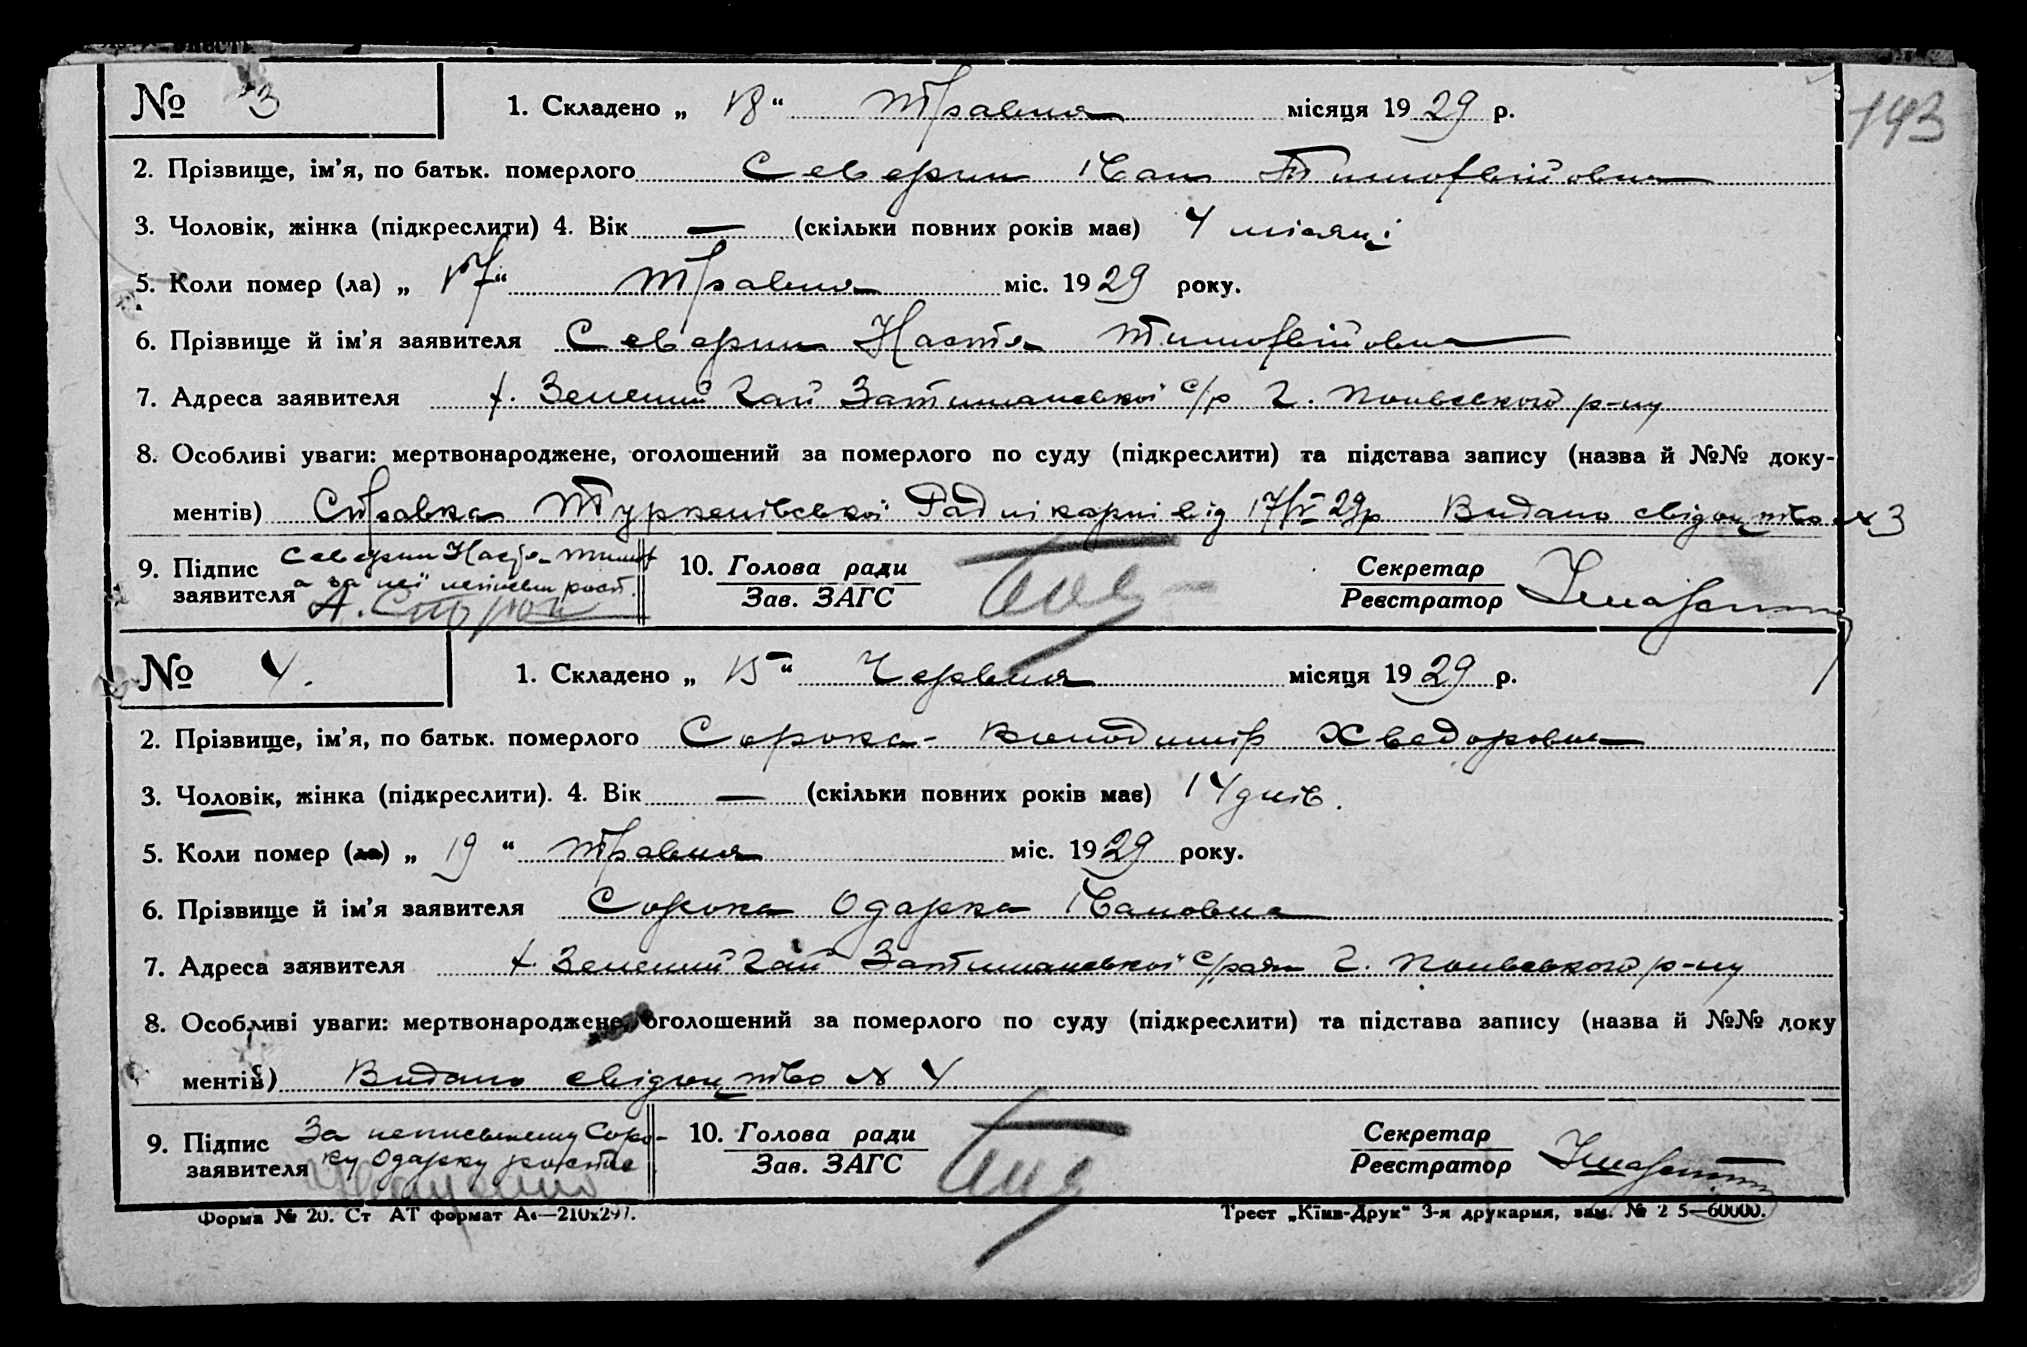 № 3 1. Складено „ 18 “ Травня місяця 19 29 р.
143
2. Прізвище, ім’я, по батьк. померлого Северин Іван Тимофвійовна
3. Чоловік, жінка (підкреслити) 4. Вік — (скільки повних років має) 4 місяці
5. Коли помер (ла) „ 17 “ Травня міс. 19 29 року.
6. Прізвище й ім’я заявителя Северин Настя Тимофвійовна
7. Адреса заявителя х. Зелений Гай Затишанської с/р Г. Польского р-ну
8. Особливі уваги: мертвонароджене, оголошений за померлого по суду (підкреслити) та підстава запису (назва й №№ доку-
ментів) Справка Туркенівської лікарні від 17/V 29р Видано свідоцтво № 3
9. Підпис Северин Настя Тимоф 10. Голова ради Секретар
заявителя а за неї неписьм розп. Зав. ЗАГС Реєстратор
А. Сторож
№ 4. 1. Складено „ 15 “ Червня місяця 19 29 р.
2. Прізвище, ім’я, по батьк. померлого Сорока Володимір Хведоровна
3. Чоловік, жінка (підкреслити). 4. Вік — (скільки повних років має) 14 днів.
5. Коли помер (ла) „ 19 “ Травня міс. 19 29 року.
6. Прізвище й ім’я заявителя Сорока Одарка Івановна
7. Адреса заявителя х. Зелений Гай Затишанської с/ради Г. Польвського р-ну
8. Особливі уваги: мертвонароджене, оголошений за померлого по суду (підкреслити) та підстава запису (назва й №№ доку
ментів) Видано свідоцтво № 4
9. Підпис За неписьменну Соро- 10. Голова ради Секретар
заявителя ку Одарку Зав. ЗАГС Реєстратор
Форма № 20. Ст АТ формат А4—210х297. Трест „Київ-Друк“ 3-я друкарня, зам. № 2 5—60000.